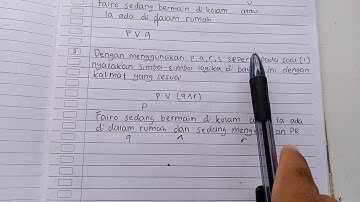 Fairo sedang bermain di kolam atau
V
ia ada di dalam rumah
P V q
2. Dengan menggunakan p, q, r, s pada soal (1)
nyatakan simbol-simbol logika di ini dengan
kalimat yang sesuai
P V (q ∧ r)
P
Fairo sedang bermain di kolam ia ada
di dalam rumah dan sedang PR
q ∧ r